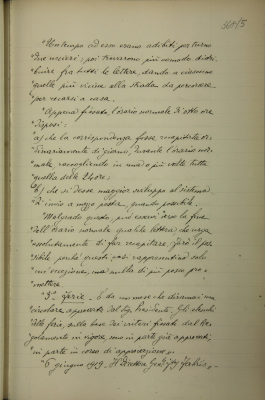 364/5
"Un tempo ad esso erano adibiti per turno
"due uscieri; poi trovarono più comodo distri
"buire fra tutti le lettere, dando a ciascuno
"quelle più vicine alla strada da percorrere
"per recarsi a casa.
"Appena fissato l'orario normale di otto ore
"disposi:
"a) che la corrispondenza fosse recapitata or
"dinariamente di giorno, durante l'orario nor
"male, raccogliendo in una o più volte tutta
"quella delle 24 ore;
"b) che si desse maggior sviluppo al sistema
"di invio a mezzo posta, quando possibile.
"Malgrado questo, può esservi verso la fine
"dell'orario normale qualche lettera che urga
"assolutamente di far recapitare. Farò il pos
"sibile perché questi casi rappresentino solo
"un'eccezione, ma nulla di più posso pro-
"mettere.
"3° Ferie. - È da un mese che diramai una
"circolare approvata dal Sig. Presidente. Gli elenchi
"delle ferie, sulla base dei criteri fissati dal Re-
"golamento in vigore, sono in parte già approvati,
"in parte in corso di approvazione.
"6 giugno 1919. Il Direttore